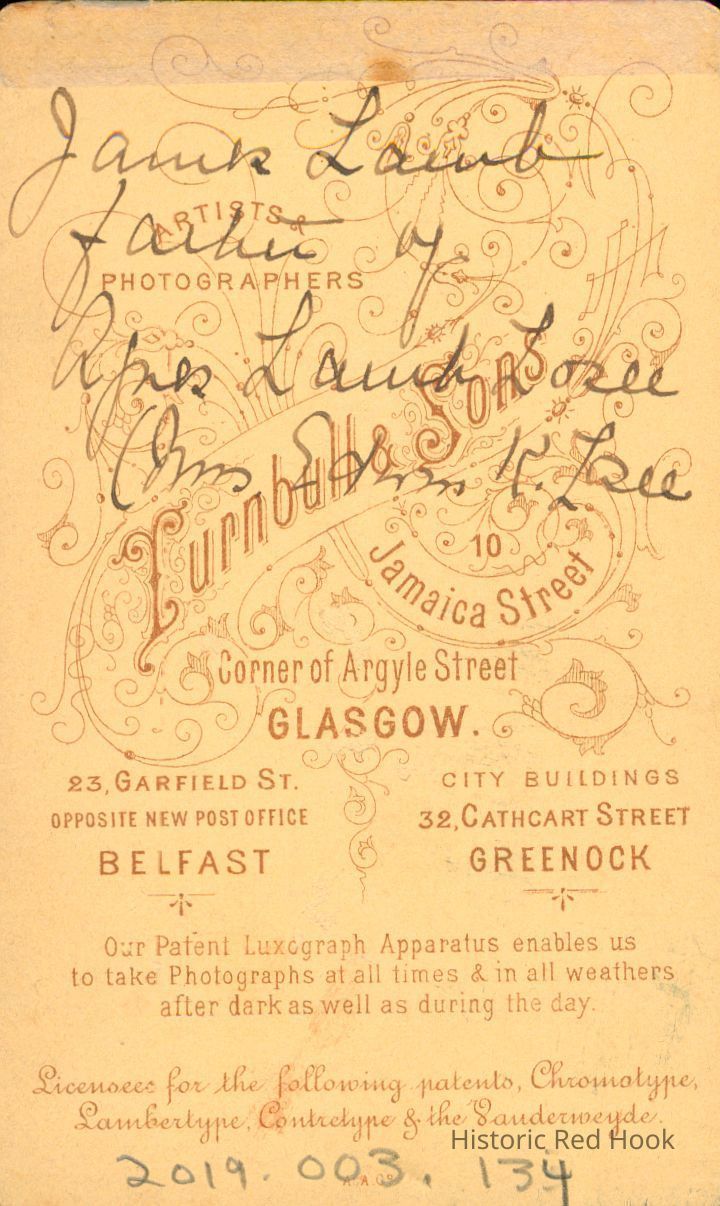 James Lamb
father of
Agnes Lamb Losee
(Mrs. Edwin K. Losee
ARTISTS &
PHOTOGRAPHERS
Turnbull & Sons
10
Jamaica Street
Corner of Argyle Street
GLASGOW.
23, GARFIELD ST.
OPPOSITE NEW POST OFFICE
BELFAST
CITY BUILDINGS
32, CATHCART STREET
GREENOCK
Our Patent Luxograph Apparatus enables us
to take Photographs at all times & in all weathers
after dark as well as during the day.
Licensees for the following patents, Chromotype,
Lambertype, Contretype & the Vanderweyde.
Historic Red Hook
2019.003.134